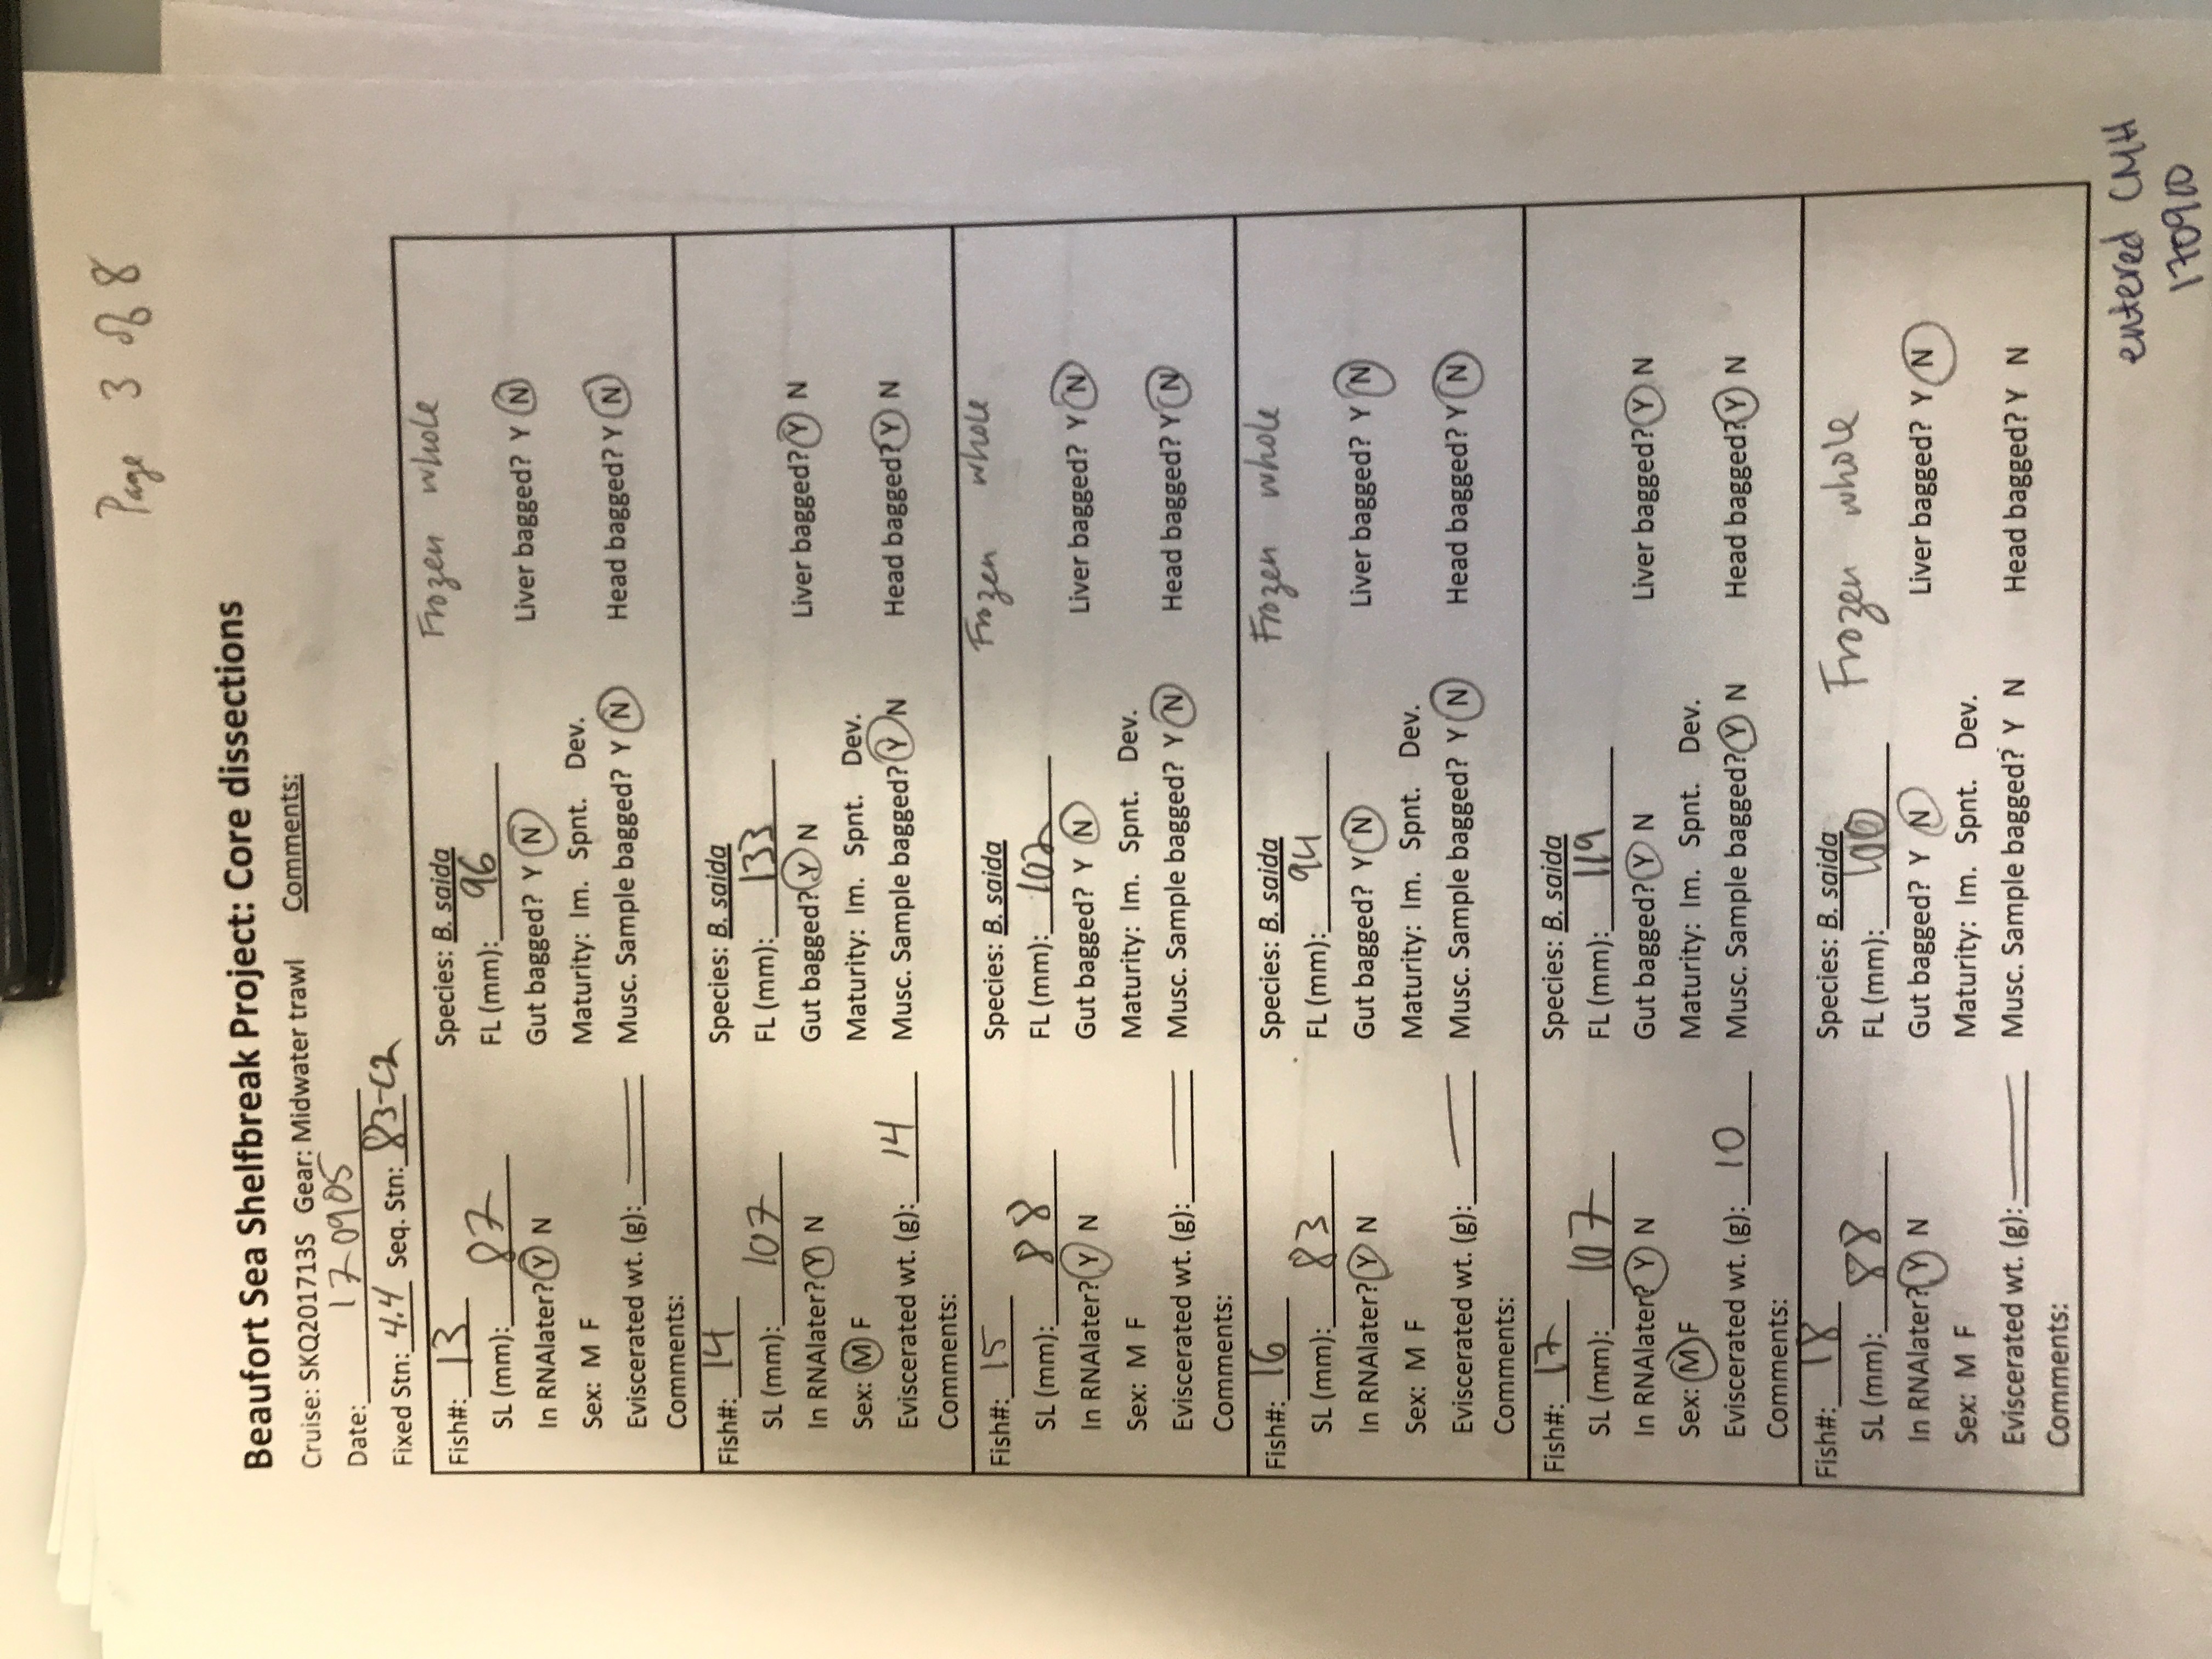 Page 3 of 8
Beaufort Sea Shelfbreak Project: Core dissections
Cruise: SKQ201713S Gear: Midwater trawl Comments:
Date: 170905
Fixed Stn: 4.4 Seq. Stn: 83-C2
Fish#: 13 Species: B. saida Frozen whole
SL (mm): 87 FL (mm): 96
In RNAlater? Y N Gut bagged? Y N Liver bagged? Y N
Sex: M F Maturity: Im. Spnt. Dev.
Eviscerated wt. (g): — Musc. Sample bagged? Y N Head bagged? Y N
Comments:
Fish#: 14 Species: B. saida
SL (mm): 107 FL (mm): 133
In RNAlater? Y N Gut bagged? Y N Liver bagged? Y N
Sex: M F Maturity: Im. Spnt. Dev.
Eviscerated wt. (g): 14 Musc. Sample bagged? Y N Head bagged? Y N
Comments:
Fish#: 15 Species: B. saida Frozen whole
SL (mm): 88 FL (mm): 102
In RNAlater? Y N Gut bagged? Y N Liver bagged? Y N
Sex: M F Maturity: Im. Spnt. Dev.
Eviscerated wt. (g): — Musc. Sample bagged? Y N Head bagged? Y N
Comments:
Fish#: 16 Species: B. saida Frozen whole
SL (mm): 83 FL (mm): 94
In RNAlater? Y N Gut bagged? Y N Liver bagged? Y N
Sex: M F Maturity: Im. Spnt. Dev.
Eviscerated wt. (g): — Musc. Sample bagged? Y N Head bagged? Y N
Comments:
Fish#: 17 Species: B. saida
SL (mm): 107 FL (mm): 119
In RNAlater? Y N Gut bagged? Y N Liver bagged? Y N
Sex: M F Maturity: Im. Spnt. Dev.
Eviscerated wt. (g): 10 Musc. Sample bagged? Y N Head bagged? Y N
Comments:
Fish#: 18 Species: B. saida Frozen whole
SL (mm): 88 FL (mm):
In RNAlater? Y N Gut bagged? Y N Liver bagged? Y N
Sex: M F Maturity: Im. Spnt. Dev.
Eviscerated wt. (g): — Musc. Sample bagged? Y N Head bagged? Y N
Comments:
entered CMH
170910